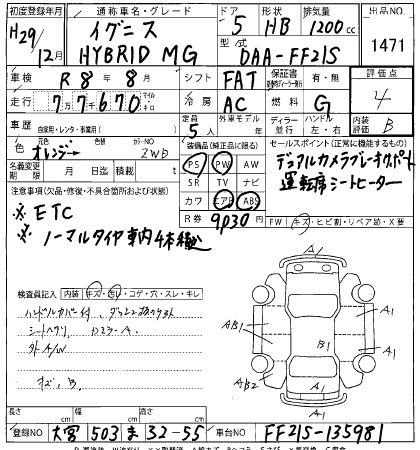 初度登録年月 通称車名・グレード ドア 形状 排気量 出品NO
H29 12月 イグニス HYBRID MG 5 HB 1200cc 1471
型式 DAA-FF21S
車検 R8年 8月 シフト FAT 保証書 有・無 評価点
走行 77,670 冷房 AC 燃料 G 4
車歴 自家用・レンタ・事業用( ) 定員 5人 外車モデル年 ディーラー 並行 ハンドル 左・右 内装 B
色 オレンジ 色替 カラーNO ZWD
装備品(純正品に限る) セールスポイント(正常に機能するもの)
名義変更期限 月 日 迄 積載 t
PS PW AW デュアルカメラブレーキサポート
SR TV ナビ 運転席シートヒーター
注意事項(欠品・修復・不具合箇所および状態)
カワ エアB ABS
※ ETC R券 9930 FW キズ・ヒビ割・リペア跡・X要
※ ノーマルタイヤ車内4本積込
検査員記入 内装 キズ・汚レ・コゲ・穴・スレ・キレ
ハンドルカバー付
外A/W
A1
A1
A1
AB1
B1
A1
AB2
A1
長さ cm 幅 cm 高さ cm
登録NO 大宮 503 ま 32-55 車台NO FF21S-135981